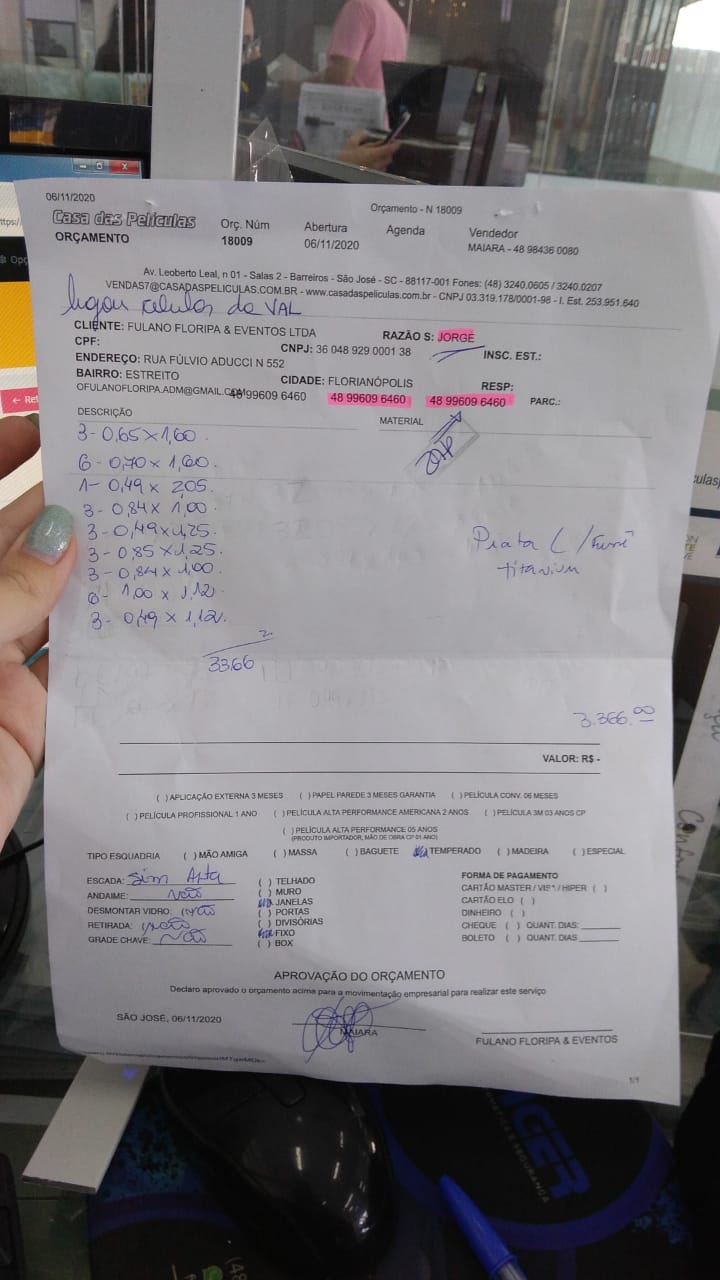 06/11/2020
Orçamento - N 18009
Casa das Películas
ORÇAMENTO
Orç. Núm
18009
Abertura
06/11/2020
Agenda
Vendedor
MAIARA - 48 98436 0080
Av. Leoberto Leal, n 01 - Salas 2 - Barreiros - São José - SC - 88117-001 Fones: (48) 3240.0605 / 3240.0207
VENDAS7@CASADASPELICULAS.COM.BR - www.casadaspeliculas.com.br - CNPJ 03.319.178/0001-98 - I. Est. 253.951.640
ligou celular da VAL
CLIENTE: FULANO FLORIPA & EVENTOS LTDA RAZÃO S: JORGE
CPF: CNPJ: 36 048 929 0001 38 INSC. EST.:
ENDEREÇO: RUA FÚLVIO ADUCCI N 552
BAIRRO: ESTREITO CIDADE: FLORIANÓPOLIS RESP:
OFULANOFLORIPA.ADM@GMAIL.COM 48 99609 6460 48 99609 6460 48 99609 6460 PARC.:
DESCRIÇÃO MATERIAL
3- 0,65 x 1,60.
6- 0,70 x 1,60.
1- 0,49 x 2,05.
3- 0,84 x 1,00
3- 0,49 x 1,25.
3- 0,85 x 1,25.
3- 0,84 x 1,00.
6- 1,00 x 1,12.
3- 0,49 x 1,12.
Prata / Fumê
titanium
3366
3.366.00
VALOR: R$ -
( ) APLICAÇÃO EXTERNA 3 MESES ( ) PAPEL PAREDE 3 MESES GARANTIA ( ) PELÍCULA CONV. 06 MESES
( ) PELÍCULA PROFISSIONAL 1 ANO ( ) PELÍCULA ALTA PERFORMANCE AMERICANA 2 ANOS ( ) PELÍCULA 3M 03 ANOS CP
( ) PELÍCULA ALTA PERFORMANCE 05 ANOS
(PRODUTO IMPORTADOR, MÃO DE OBRA CP 01 ANO)
TIPO ESQUADRIA ( ) MÃO AMIGA ( ) MASSA ( ) BAGUETE TEMPERADO ( ) MADEIRA ( ) ESPECIAL
ESCADA: Sim Alta
ANDAIME: Não
DESMONTAR VIDRO: Não
RETIRADA: Não
GRADE CHAVE: Não
( ) TELHADO
( ) MURO
JANELAS
( ) PORTAS
( ) DIVISÓRIAS
FIXO
( ) BOX
FORMA DE PAGAMENTO
CARTÃO MASTER / VISA / HIPER ( )
CARTÃO ELO ( )
DINHEIRO ( )
CHEQUE ( ) QUANT. DIAS:
BOLETO ( ) QUANT. DIAS
APROVAÇÃO DO ORÇAMENTO
Declaro aprovado o orçamento acima para a movimentação empresarial para realizar este serviço
SÃO JOSÉ, 06/11/2020
MAIARA
FULANO FLORIPA & EVENTOS
1/1